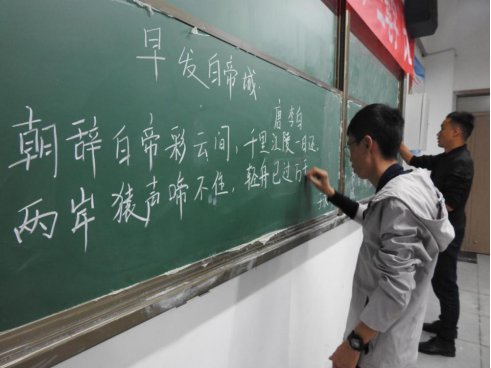 早发白帝城
唐 李白
朝辞白帝彩云间，千里江陵一日还.
两岸猿声啼不住，轻舟已过万